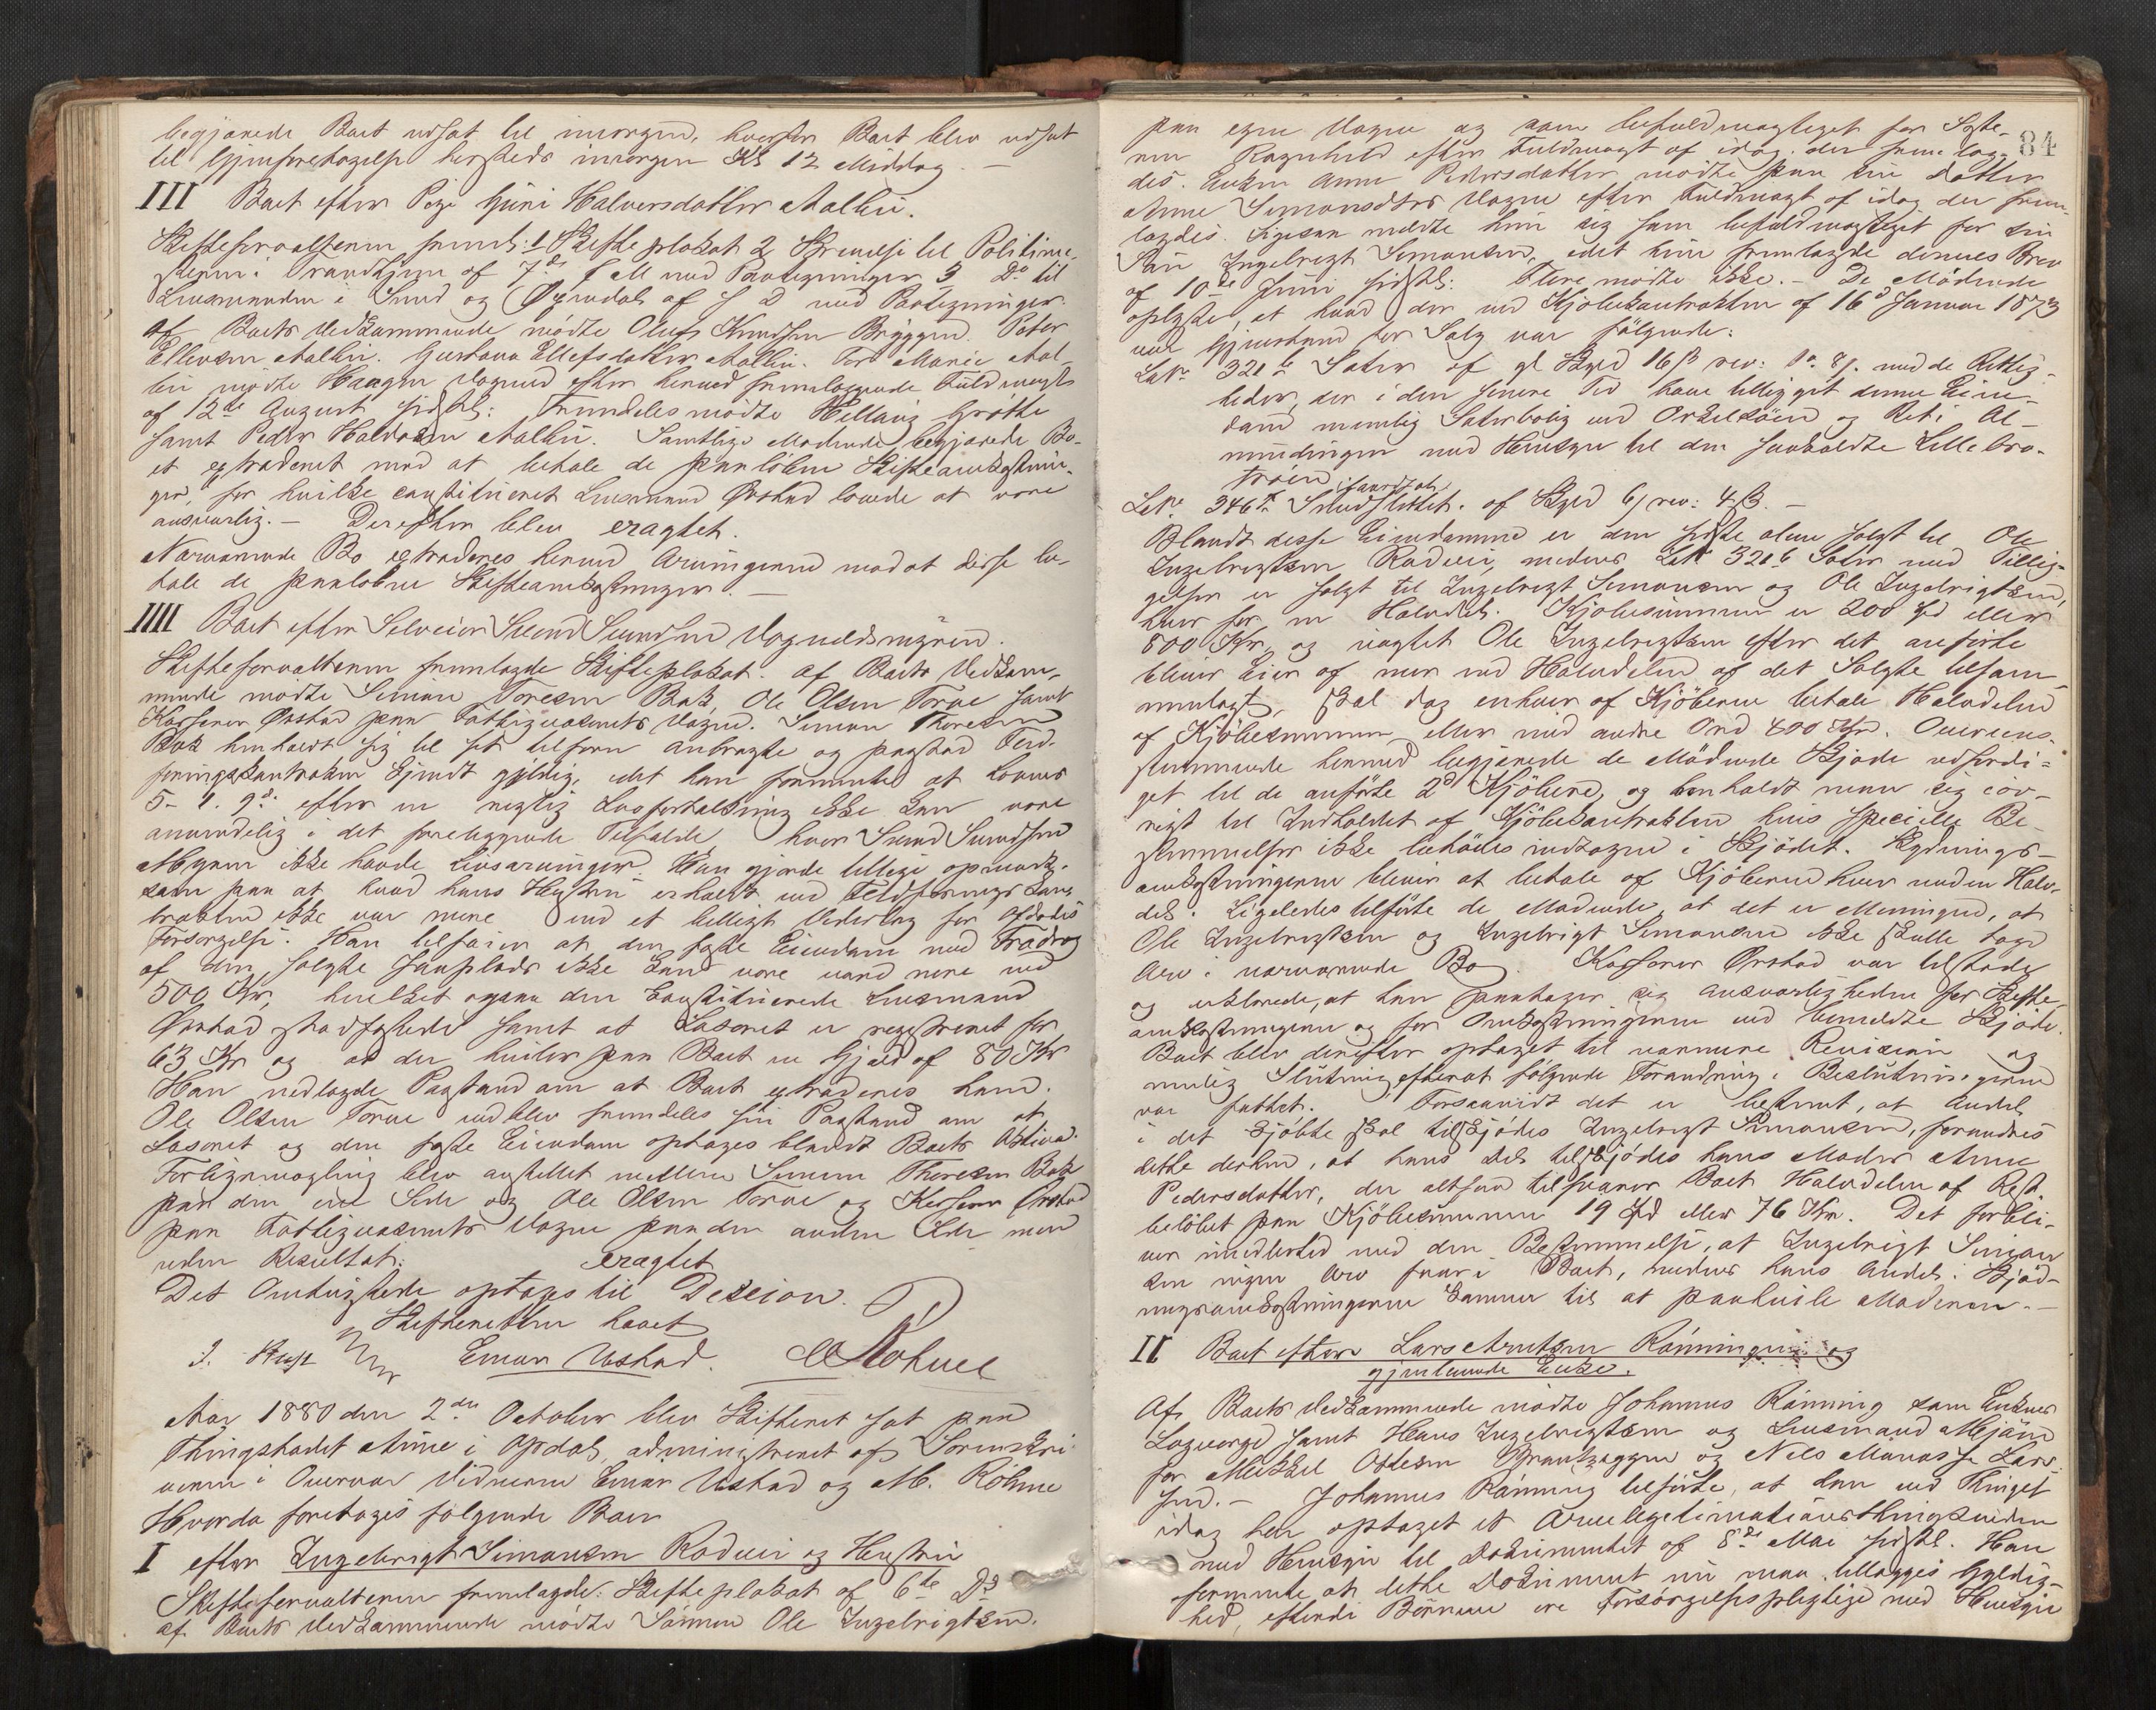 begjærede Boet udsat til imorgen, hvorfor Boet blev udsat
til Gjenforetagelse hersteds imorgen Kl 12 Middag. —
III Boet efter Pige Guri Halvorsdatter Aalbu.
Skifteforvalteren freml: 1 Skifteplakat 2, Skrivelse til Politime-
steren i Trondhjem af 7de f M med Paategninger 3 Do til
Lensmanden i Sund og Øxendal af s D med Paategninger.
Af Boets Vedkommende mødte Oluf Knudsen Bryggen. Peter
Ellevsen Aalbu. Gustava Ellefsdatter Aalbu. For Marie Aal-
bu mødte Haagen Vognild efter herved fremlæggende Fuldmagt
af 12te August sidstl: Fremdeles mødte Hellaug Grøtte
samt Peder Haldosen Aalbu. Samtlige Mødende begjærede Bo-
et extraderet mod at betale de paaløbne Skifteomkostnin-
ger, for hvilke constitueret Lensmand Ørstad lovede at være
ansvarlig. — Derefter blev eragtet.
Nærværende Bo extraderes herved Arvingerne mod at disse be-
tale de paaløbne Skifteomkostninger. —
IIII Boet efter Sivert Sivertsen Vognildsmyren.
Skifteforvalteren fremlagde Skifteplakat. Af Boets Vedkom-
mende mødte Simon Toresen Bak, Ole Olsen Torve samt
Kasserer Ørstad paa Fattigvæsenets Vegne. Simon Thoresen
Bak henholdt sig til sit tilforn anbragte og paastod Fled-
føringskontrakten kjendt gyldig, idet han formente at Lovens
5- 1. 9de efter en rigtig Lovfortolkning ikke kan være
anvendelig i det foreliggende Tilfælde, hvor Sivert Sivertsen
Myren ikke havde Livsarvinger. Han gjorde tillige opmærk-
som paa at hvad hans Hustru erholdt ved Fledføringskon-
trakten ikke var mere end et billigt Vederlag for Afdødes
Forsørgelse. Han tilføier at den faste Eiendom med Fradrag
af den solgte Huusplads ikke kan være værd mere end
500 Kr, hvilket ogsaa den Constituerede Lensmand
Ørstad stadfæstede samt at Løsøret er registreret for
63 Kr og at der hviler paa Boet en Gjæld af 80 Kr
Han nedlagde Paastand om at Boet extraderes ham.
Ole Olsen Torve nedlagde fremdeles sin Paastand om at
Løsøret og den faste Eiendom optages blandt Boets Aktiva.
Forligsmægling blev anstillet mellem Simon Thoresen Bak
paa den ene Side og Ole Olsen Torve og Kasserer Ørstad
paa Fattigvæsenets Vegne paa den anden Side men
uden Resultat. eragtet
Det Omtvistede optages til Decision.
Skifteretten hævet
Einar Ustad. M Røhme
Aar 1880 den 2den October blev Skifteret sat paa
Thingstedet Aune i Opdal, administreret af Sorenskri-
veren i Overvær Vidnerne Einar Ustad og M. Røhme
Hvorda foretages følgende Boer
I efter Ingebrigt Simonsen Rødsei og Hustru
Skifteforvalteren fremlagde: Skifteplakat af 6te Ds
af Boets Vedkommende mødte Sønnen Ole Ingebrigtsen.
84
paa egne Vegne og som befuldmægtiget for Søste-
ren Ragnhild efter Fuldmagt af idag, der fremlag-
des. Enken Anne Pedersdatter mødte paa sin Datter
Anne Simonsdtrs Vegne efter Fuldmagt af idag der frem-
lagdes. Ligesaa meldte hun sig som befuldmægtiget for sin
Søn Ingebrigt Simonsen, idet hun fremlagde dennes Brev
af 10de Juni sidstl: Flere mødte ikke. — De Mødende
oplyste, at hvad der ved Kjøbekontrakten af 16de Januar 1873
var Gjenstand for Salg var følgende:
LNr. 321b Sæter af gl Skyld 16 ß rev: 1 o. 8 ß. med de Rettig-
heder, der i den senere Tid have tilligget denne Eien-
dom nemlig Sæterbolig ved Orkelsøen og Ret i Al-
mindingen med Hensyn til den saakaldte Lillebro-
trøen,
LNr. 346 af Skyld 6 ß rev: 4 ß. —
Blandt disse Eiendomme er den sidste alene solgt til Ole
Ingebrigtsen Rødsei, medens LNr 321b Sæter med Tillig-
gelser er solgt til Ingebrigt Simonsen og Ole Ingebrigtsen,
hver for en Halvdel. Kjøbesummen er 200 Spd eller
800 Kr, og uagtet Ole Ingebrigtsen efter det anførte
bliver Eier af mer end Halvdelen af det Solgte tilsam-
menlagt, skal dog enhver af Kjøberne betale Halvdelen
af Kjøbesummen eller med andre Ord 400 Kr. Overens-
stemmende hermed begjærede de Mødende Skjøde udfærdi-
get til de anførte 2de Kjøbere, og henholdt man sig iøv-
rigt til Indholdet af Kjøbekontrakten hvis specielle Be-
stemmelser ikke behøves indtagne i Skjødet. Skjødnings-
omkostningerne bliver at betale af Kjøberne hver med en Halv-
del. Ligeledes tilførte de Mødende, at det er Meningen, at
Ole Ingebrigtsen og Ingebrigt Simonsen ikke skulle tage
Arv i nærværende Bo. Kasserer Ørstad var tilstede
og erklærede, at han paatager sig Ansvarligheden for Skifte-
omkostningerne og for Omkostningerne ved bemeldte Skjøde.
Boet blev derefter optaget til nærmere Revision og
mulig Slutning, efterat følgende Forandring i Beslutningerne
var fattet. Forsaavidt det er bestemt, at Andel
i det Kjøbte skal tilskjødes Ingebrigt Simonsen, forandres
dette derhen, at hans Del tilskjødes hans Moder Anne
Pedersdatter, der altsaa tilsvarer Boet Halvdelen af Rest-
beløbet paa Kjøbesummen 19 Spd eller 76 Kr. Det forbli-
ver imidlertid ved den Bestemmelse, at Ingebrigt Simon-
sen ingen Arv faar i Boet, medens hans Andel i Skjød-
ningsomkostningerne kommer til at paahvile Moderen. —
II Boet efter Lars Arntsen Rønningen og
gjenlevende Enke.
Af Boets Vedkommende mødte Johannes Rønning som Enkens
Laugværge samt Hans Ingebrigtsen og Lensmand Mjøen
for Mikkel Ottesen og Nils Manasse Lars-
sen. — Johannes Rønning tilførte, at han ved Thinget
idag har optaget et Arvelegitimationsthingsvidne
med Hensyn til Dokumentet af 8de Mai sidstl. Han
formente at dette Dokument nu maa tillægges Gyldig-
hed, efterdi Børnene ere Forsørgelsespligtige med Hensyn